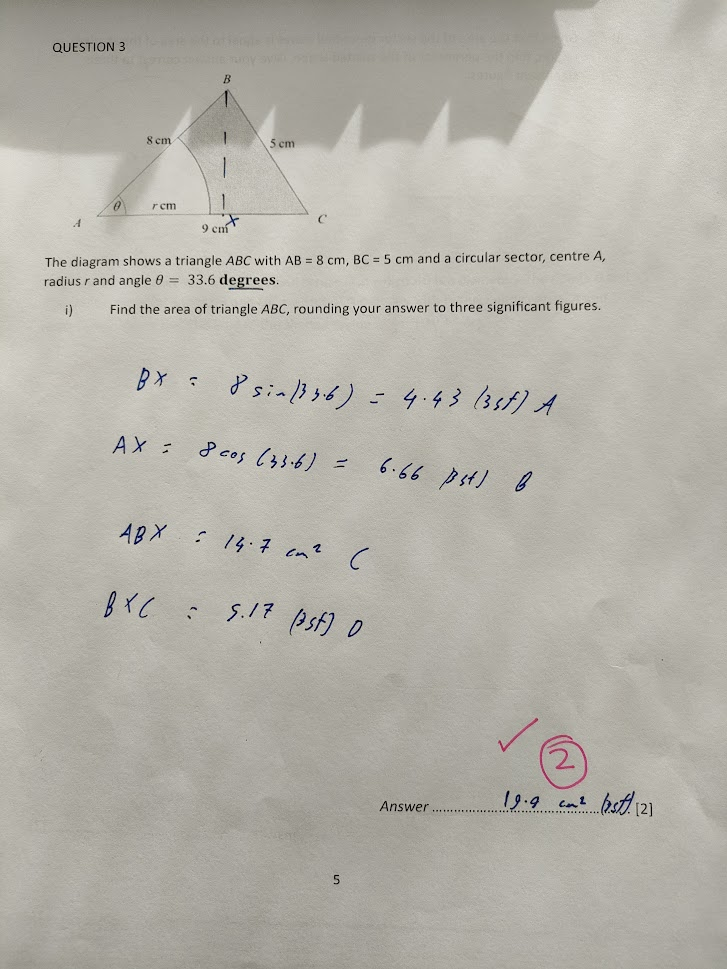 QUESTION 3
B
8 cm
5 cm
θ
r cm
A
X
C
9 cm
The diagram shows a triangle ABC with AB = 8 cm, BC = 5 cm and a circular sector, centre A,
radius r and angle θ = 33.6 degrees.
i) Find the area of triangle ABC, rounding your answer to three significant figures.
BX = 8 sin(33.6) = 4.43 (3sf) A
AX = 8cos (33.6) = 6.66 (3sf) B
ABX = 14.7 cm² C
BXC = 5.17 (3sf) D
✓ 2
Answer .................. 19.9 cm² (3sf). [2]
5